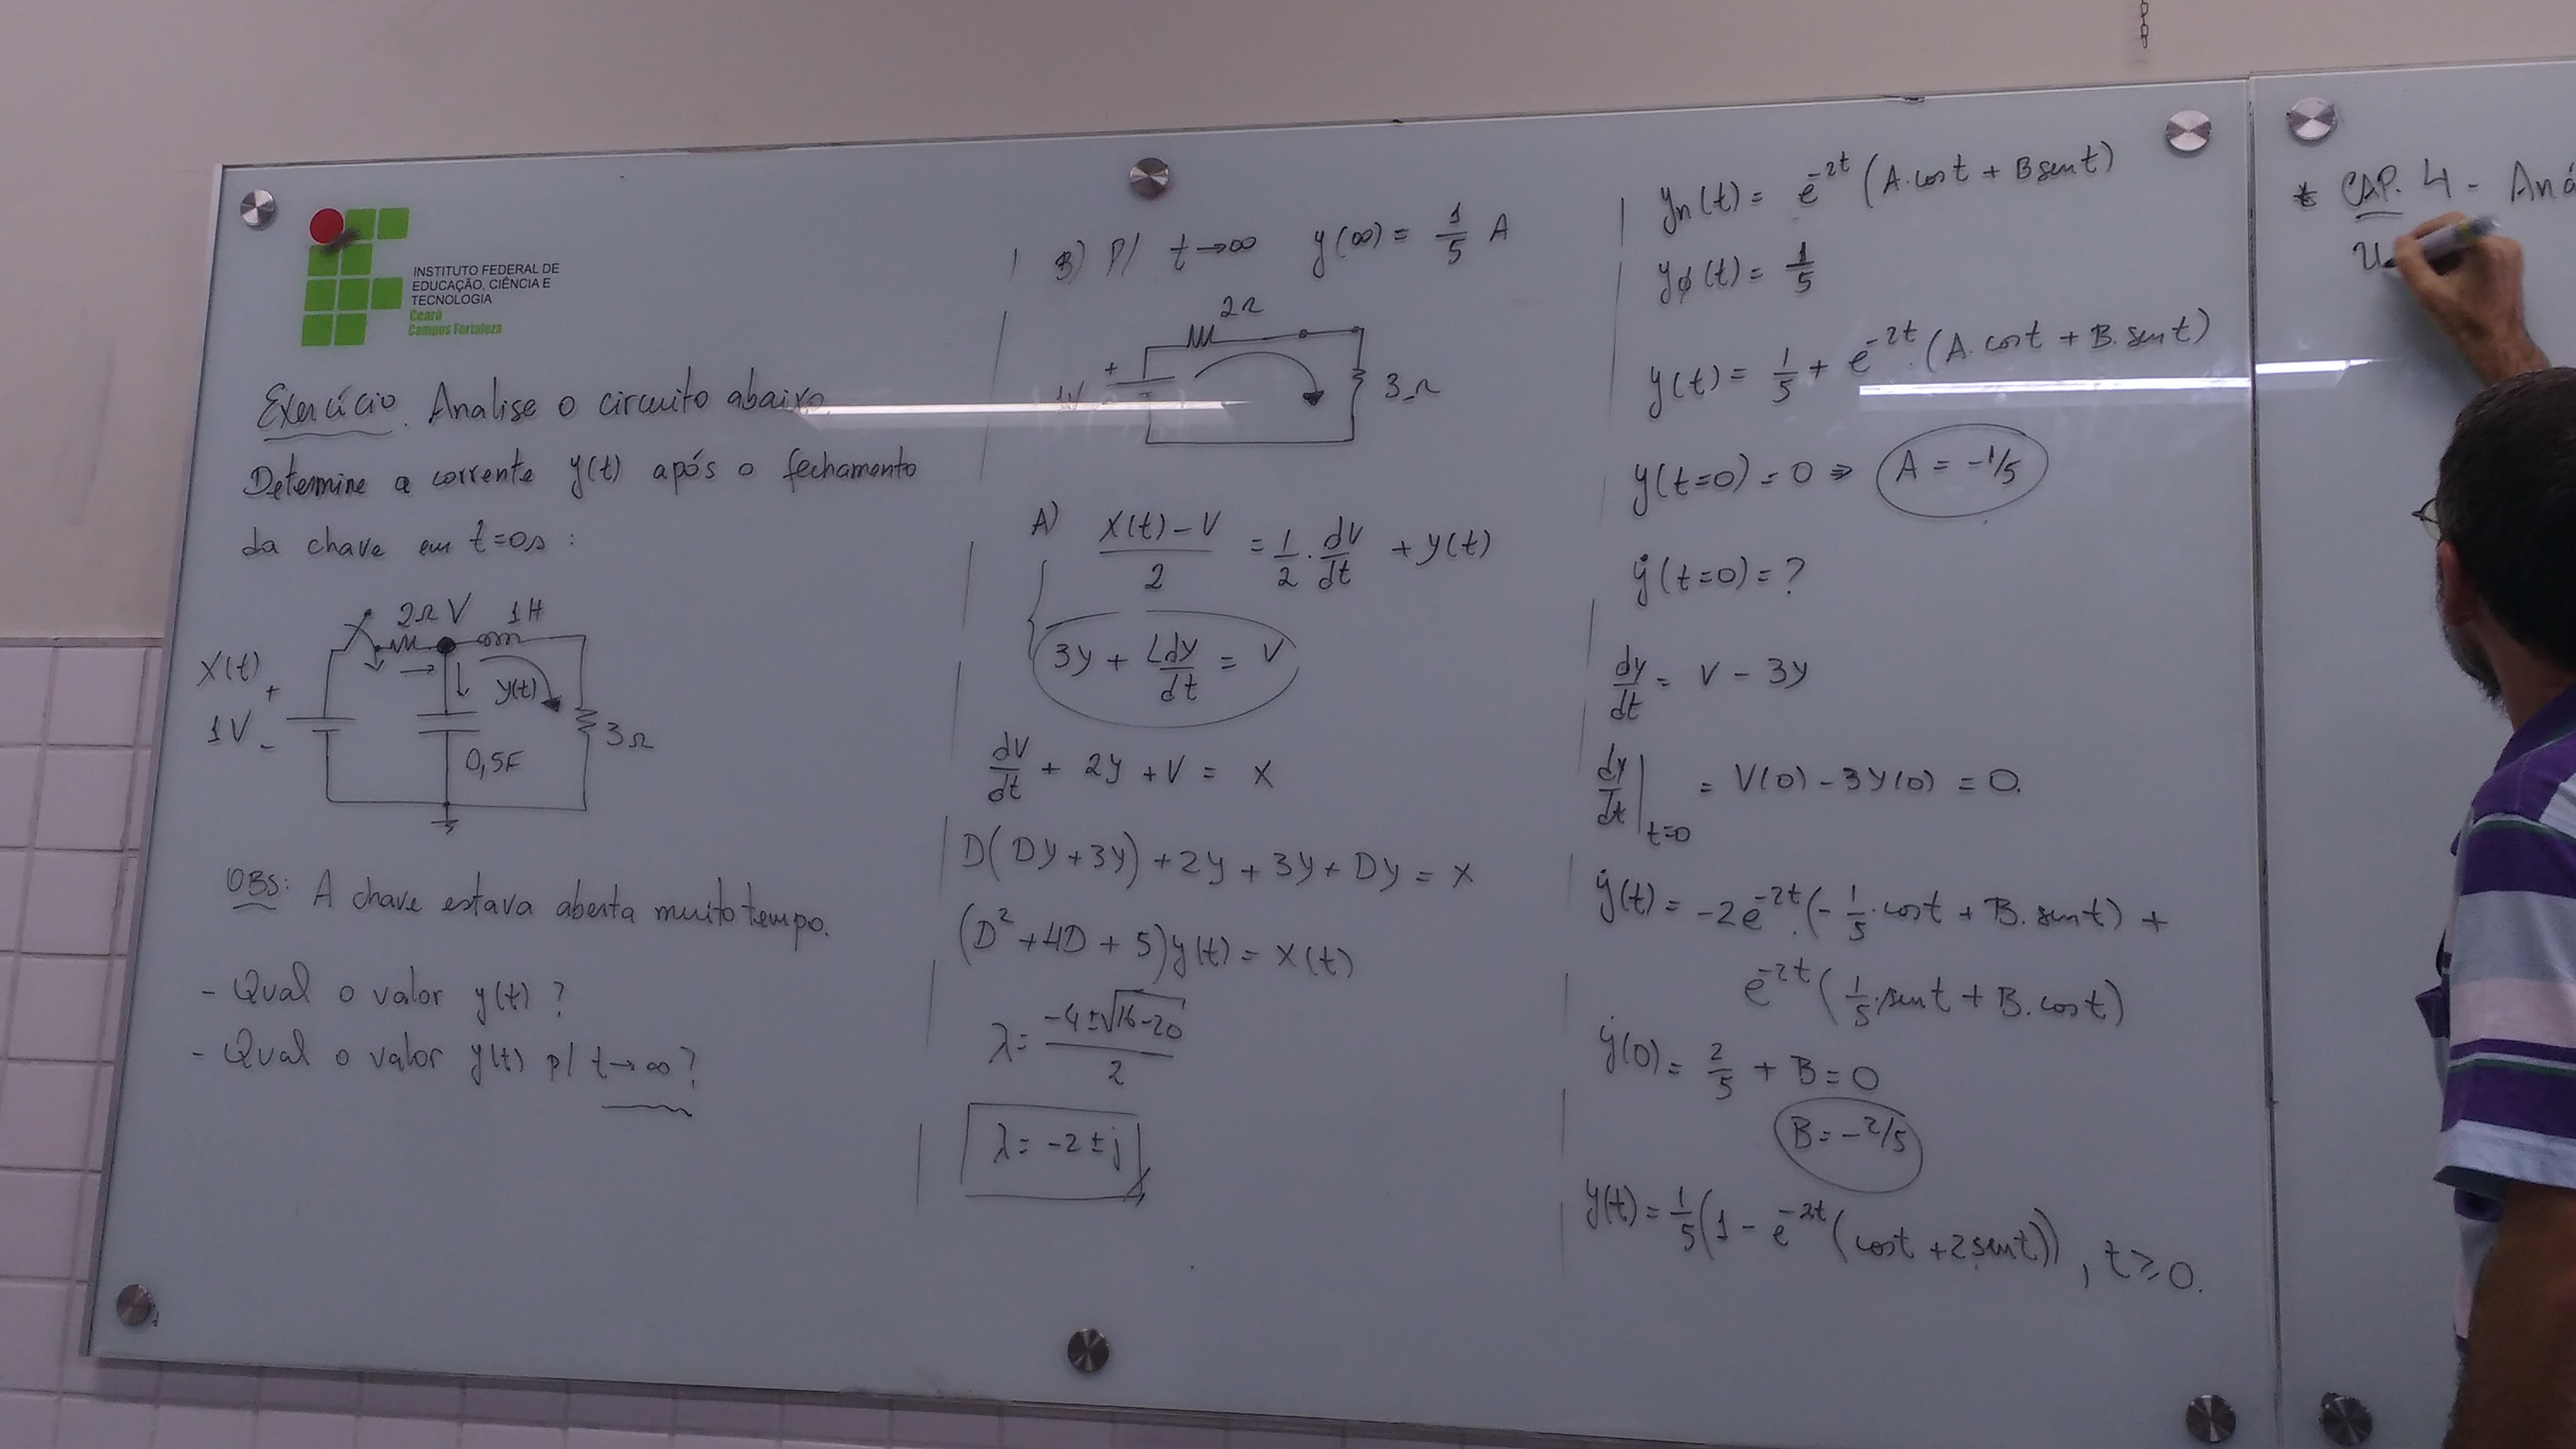 INSTITUTO FEDERAL DE
EDUCAÇÃO, CIÊNCIA E
TECNOLOGIA
Ceará
Campus Fortaleza
Exercício. Analise o circuito abaixo.
Determine a corrente y(t) após o fechamento
da chave em t=0s :
2Ω V 1H
X(t)
+
1V -
y(t)
3Ω
0,5F
OBS: A chave estava aberta muito tempo.
- Qual o valor y(t) ?
- Qual o valor y(t) p/ t→∞ ?
B) P/ t→∞ y(∞) = 1/5 A
2Ω
+
1V -
3Ω
A) (X(t) - V)/2 = 1/2 · dV/dt + y(t)
3y + Ldy/dt = V
dV/dt + 2y + V = X
D(Dy+3y) + 2y + 3y + Dy = X
(D² + 4D + 5)y(t) = X(t)
λ = (-4 ± √16-20)/2
λ = -2 ± j
yn(t) = e^-2t (A.cost + Bsent)
yϕ(t) = 1/5
y(t) = 1/5 + e^-2t.(A.cost + B.sent)
y(t=0) = 0 ⇒ A = -1/5
ẏ(t=0) = ?
dy/dt = V - 3y
dy/dt |t=0 = V(0) - 3y(0) = 0.
ẏ(t) = -2e^-2t.(-1/5.cost + B.sent) +
e^-2t (1/5.sent + B.cost)
ẏ(0) = 2/5 + B = 0
B = -2/5
y(t) = 1/5(1 - e^-2t(cost + 2sent)), t ≥ 0.
* CAP. 4 - Aná